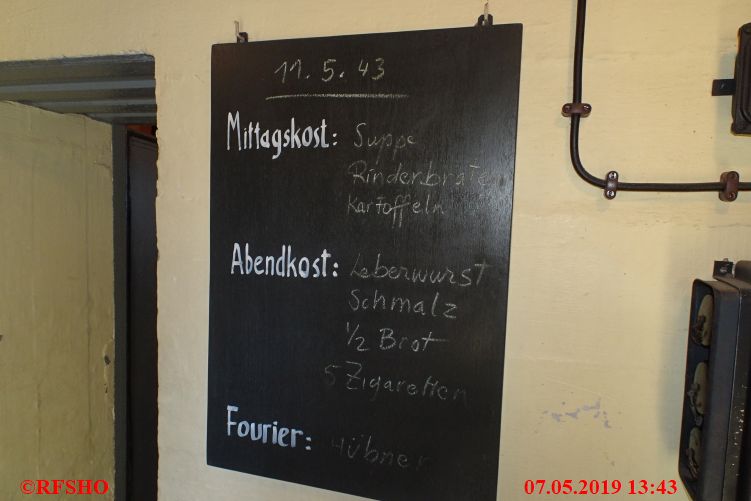 11.5.43
Mittagskost: Suppe
Rindenbraten
Kartoffeln
Abendkost: Leberwurst
Schmalz
1/2 Brot
5 Zigaretten
Fourier: Hübner
©RFSHO
07.05.2019 13:43